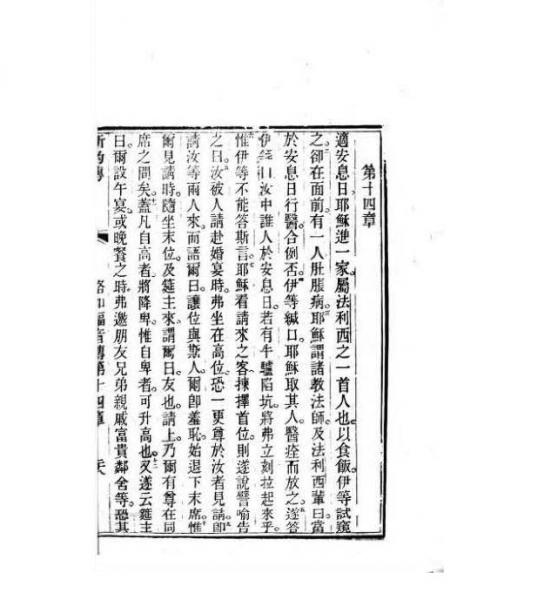 第十四章
適安息日耶穌進一家屬法利西之一首人也以食飯伊等試窺
之卻在面前有一人肚脹病耶穌謂諸教法師及法利西輩曰當
於安息日行醫合例否伊等緘口耶穌取其人醫痊而放之遂答
伊等曰汝中誰人於安息日若有牛驢陷坑將弗立刻拉起來乎
惟伊等不能答斯言耶穌看請來之客揀擇首位則遂說譬喻告
之曰汝被人請赴婚宴時弗坐在高位恐一更尊於汝者見請即
請汝等兩人來而語爾曰讓位與斯人爾即羞恥始退下末席惟
爾見請時隨坐末位及筵主來謂爾曰友也請上乃爾有尊在同
席之間矣蓋凡自高者將降卑惟自卑者可升高也又遂云筵主
曰爾設午宴或晚餐之時弗邀朋友兄弟親戚富貴鄰舍等恐其
路加福音傳第十四章